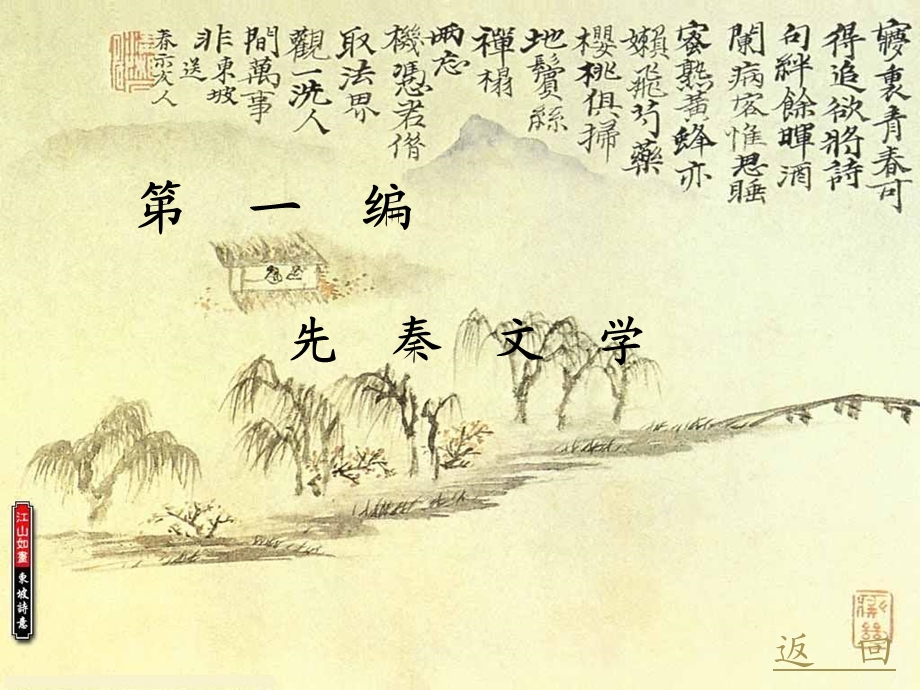 夢裏青春可
得追欲將詩
句絆餘暉酒
闌病客惟思睡
蜜熟黃蜂亦
嬾飛芍藥
櫻桃俱掃
地鬢絲
禪榻
兩忘
機憑君借
取法界
觀一洗人
間萬事
非東坡送
春示友人
第一编
先秦文学
江山如畫
東坡詩意
返回